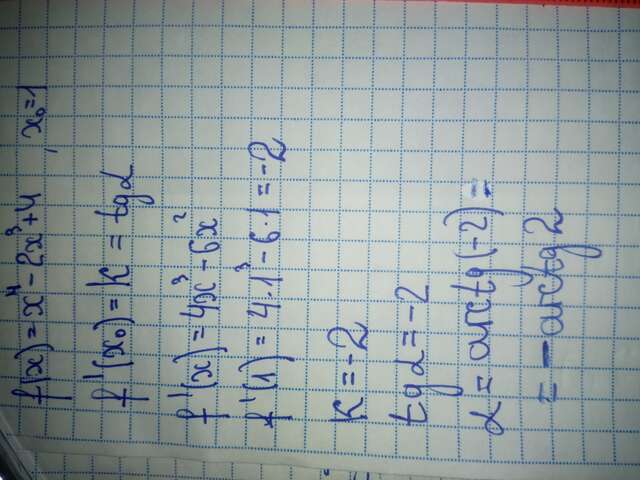 f(x) = x⁴ - 2x³ + 4 , x₀ = 1
f'(x₀) = k = tg α
f'(x) = 4x³ - 6x²
f'(1) = 4·1³ - 6·1 = -2
k = -2
tg α = -2
α = arctg(-2) =
= -arctg 2